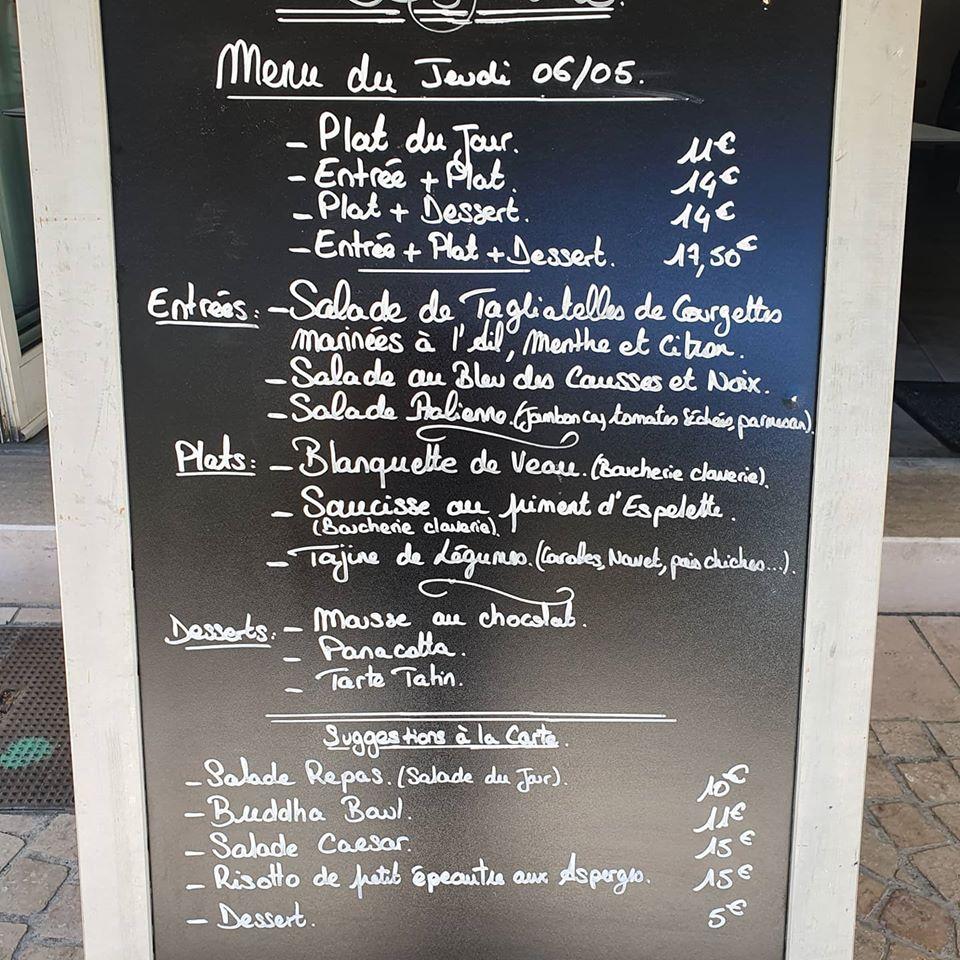 Menu du Jeudi 06/05.
- Plat du Jour. 11€
- Entrée + Plat. 14€
- Plat + Dessert. 14€
- Entrée + Plat + Dessert. 17,50€
Entrées: - Salade de Tagliatelles de Courgettes
marinées à l'ail, Menthe et Citron.
- Salade au Bleu des Causses et Noix.
- Salade Italienne (Jambon cru, tomates séchées, parmesan).
Plats: - Blanquette de Veau. (Boucherie claverie).
- Saucisse au piment d'Espelette.
(Boucherie claverie).
- Tajine de Légumes. (Carottes, Navet, pois chiches...).
Desserts: - Mousse au chocolat.
- Panacotta.
- Tarte Tatin.
Suggestions à la Carte.
- Salade Repas. (Salade du Jour). 10€
- Buddha Bowl. 11€
- Salade Caesar. 15€
- Risotto de petit épeautre aux Asperges. 15€
- Dessert. 5€